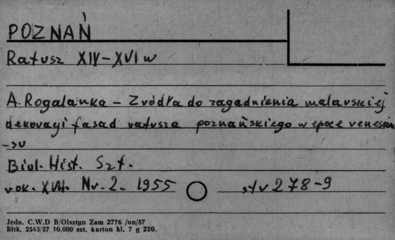 POZNAŃ
Ratusz XIV-XVI w
A. Rogalanka - Źródła do zagadnienia malarskiej
dekoracji fasad ratusza poznańskiego w epoce renesan
-su
Biul. Hist. Szt.
rok. XVII. Nr. 2. 1955 str 278-9
Jedn. C.W.D B/Olsztyn Zam 2776 /on/57
Bltk. 2563/57 10.000 szt. karton kl. 7 g 220.